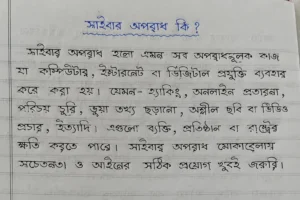 সাইবার অপরাধ কি?
সাইবার অপরাধ হলো এমন সব অপরাধমূলক কাজ
যা কম্পিউটার, ইন্টারনেট বা ডিজিটাল প্রযুক্তি ব্যবহার
করে করা হয়। যেমন- হ্যাকিং, অনলাইন প্রতারনা,
পরিচয় চুরি, ভুয়া তথ্য ছড়ানো, অশ্লীল ছবি বা ভিডিও
প্রচার, ইত্যাদি। এগুলো ব্যক্তি, প্রতিষ্ঠান বা রাষ্ট্রের
ক্ষতি করতে পারে। সাইবার অপরাধ মোকাবেলায়
সচেতনতা ও আইনের সঠিক প্রয়োগ খুবই জরুরি।